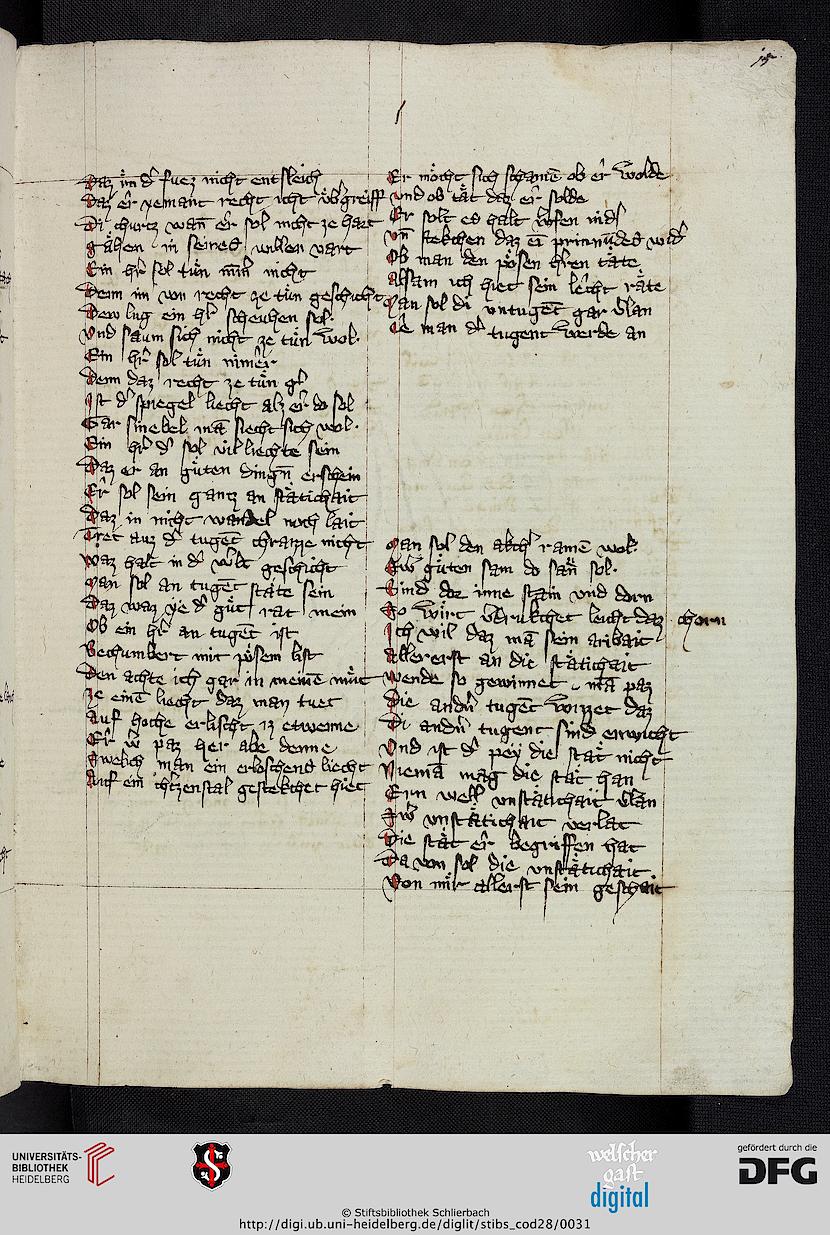 Daz im d' fuez nicht entsleich
Daz er yemant recht icht vb'greiff
Di churtz wan er sol nicht ze hart
gähen in seines willen vart
Ein h'r sol tün nicht
Denn im von recht ze tün geschicht
Dew lug ein h'r scheuhen sol.
Vnd saum sich nicht ze tün wol.
Ein h'r sol tün nim̄er
Denn daz recht ze tün
Ist d' spiegel liecht alz er do sol
Gar sinebel mā siecht sich wol.
Ein h'r d' sol vil liechte sein
Daz er an güten dingn̄ erschein
Er sol sein gantz an stätichait
Daz in nicht wandel noch lait
Tret auz d' tugēt chranze nicht
Waz halt in d' w'lt geschicht
Man sol an tugēt stäte sein
Daz waz ye d' güt rat mein
Ob ein h'r an tugēt ist
Bechumbert mit pösem list
Den achte ich gar in meinē müt
Ze einē liecht daz man tuet
Auf hoche erlischt iz etwenne
Er paz her abe denne
Swelich man ein erloschens liecht
Auf ein ch'tzenstal gestekchet hiet
Er möcht sich schamē ob er wolde
vnd ob tät daz er solde
Er solt es halt losen nid'
vn̄ stekchen daz wid'
Ob man den pösen h'ren täte
Alsam ich hiet sein leicht räte
Man sol di vntugēt gar v'lan
E man d' tugent werde an
Man sol den akch' ramē wol.
güten sam do san sol.
Sind dar inne stain vnd dorn
So wirt v'drukchet leicht daz chorn
Ich wil daz mā sein aribait
Allererst an die stätichait
wende so gewinnet mā paz
Die and'n tugēt wizzet daz
Di and'n tugent sind enwicht
Vnd ist d' pey die stät nicht
Niemā mag die stät han
Ern well vnstätichait v'lan
vnstätichait verlat
Die stät er begriffen hat
Da von sol die vnstätichait
Von mir allerst sein geschait
UNIVERSITÄTS-
BIBLIOTHEK
HEIDELBERG
welscher
gast
digital
gefördert durch die
DFG
© Stiftsbibliothek Schlierbach
http://digi.ub.uni-heidelberg.de/diglit/stibs_cod28/0031